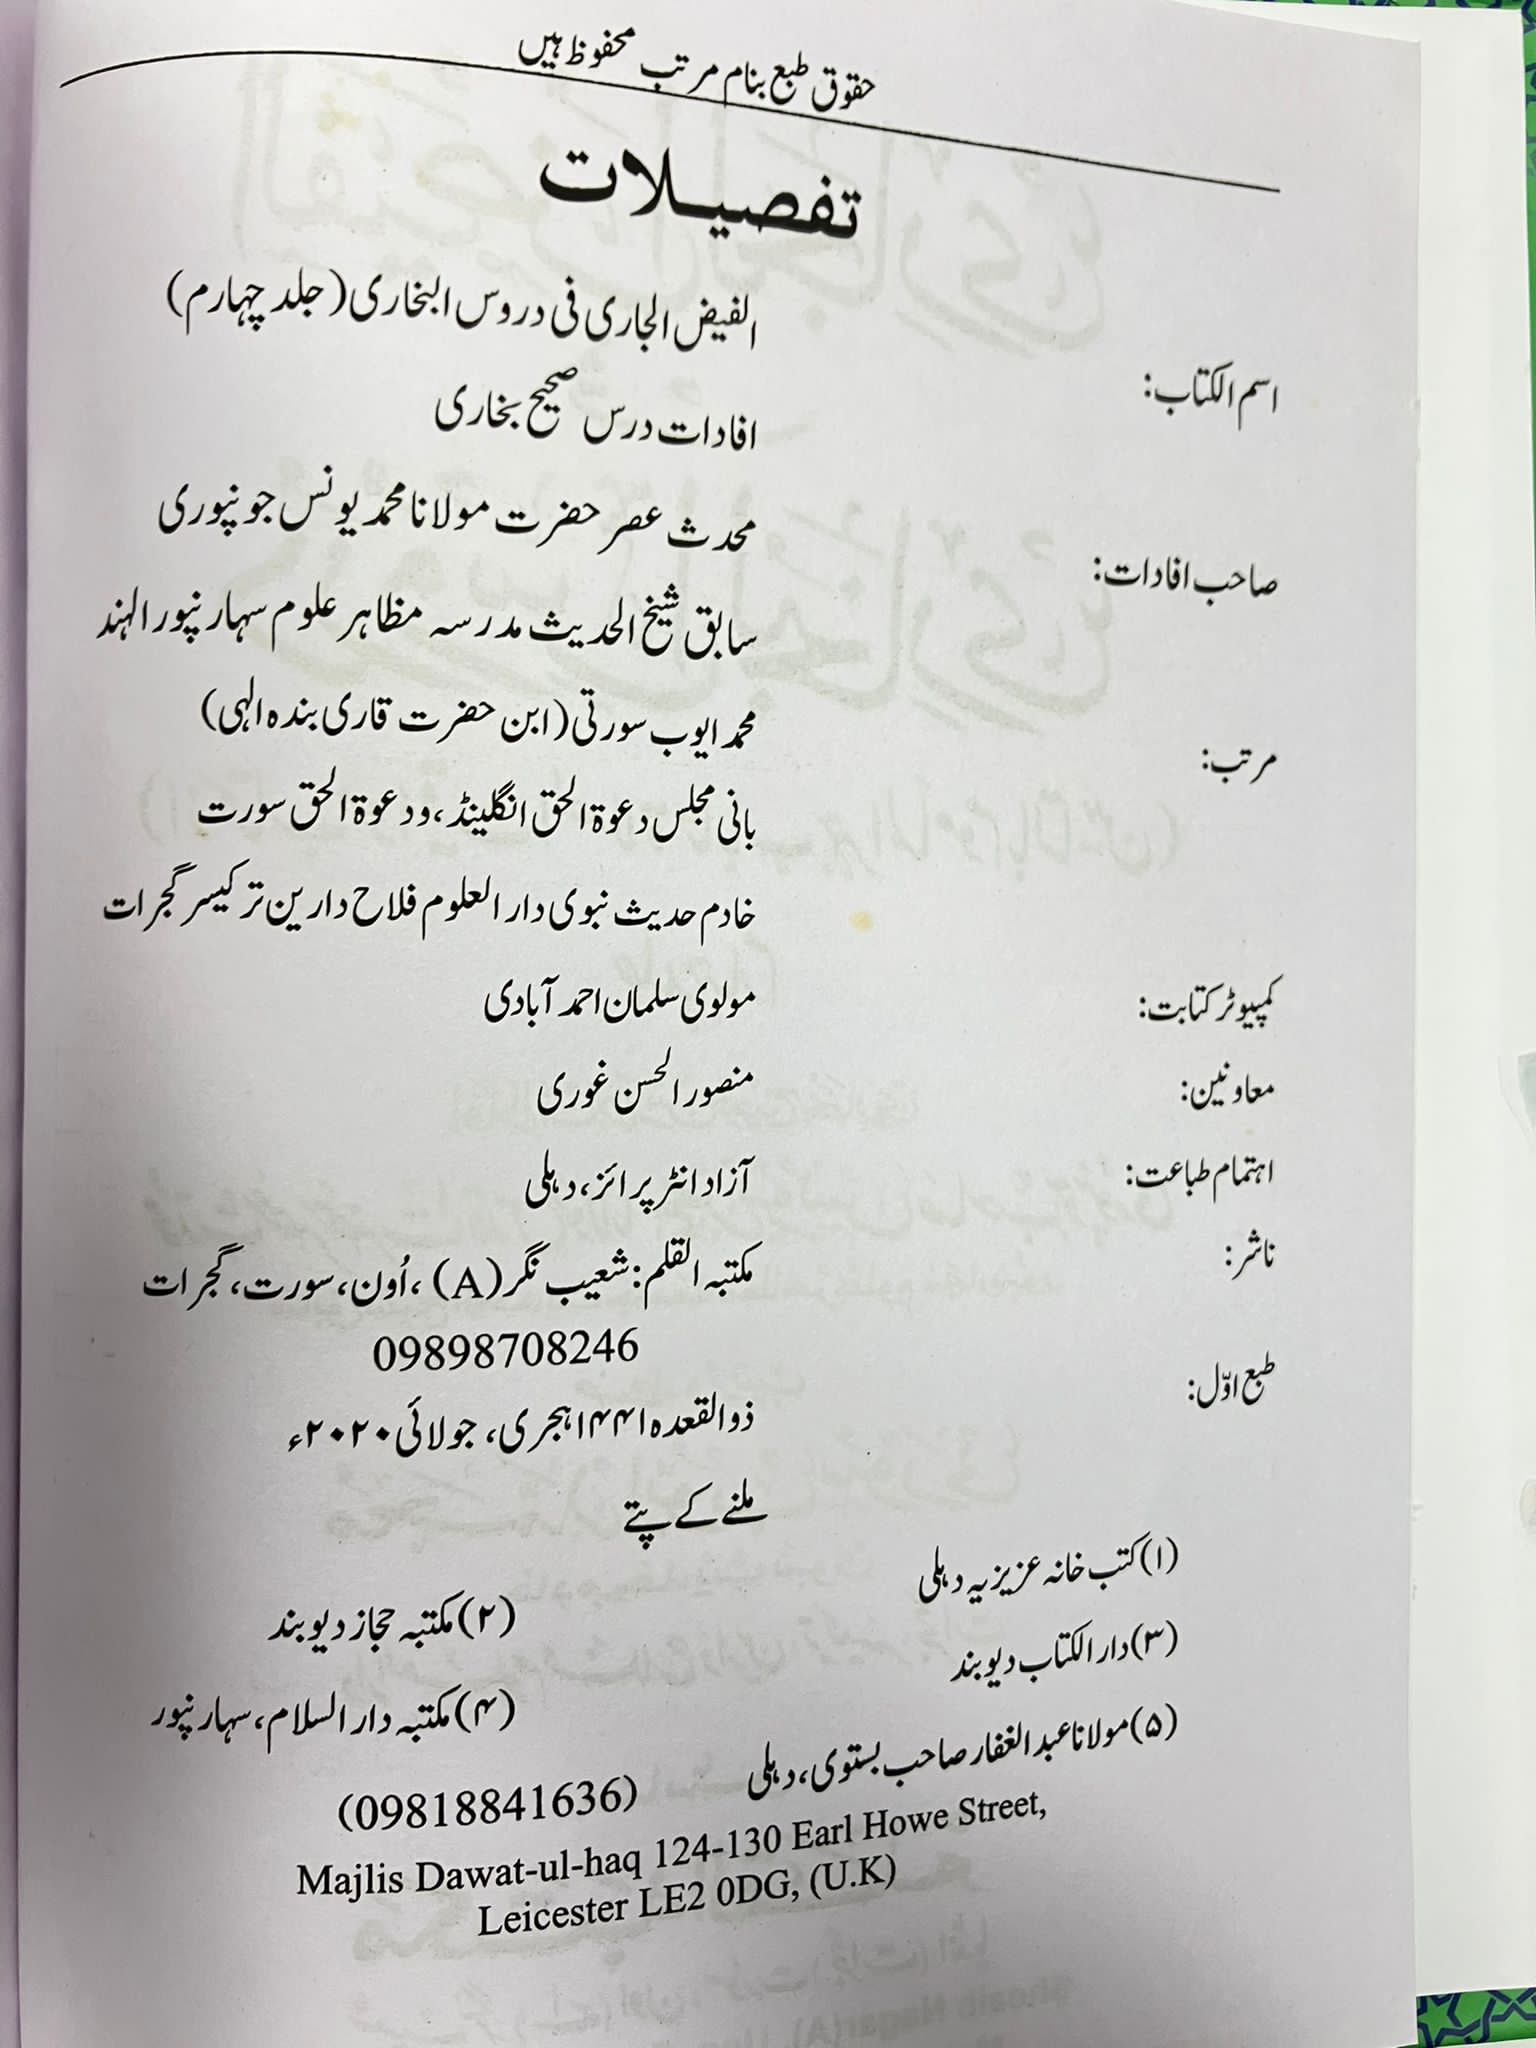 حقوق طبع بنام مرتب محفوظ ہیں
تفصیلات
اسم الکتاب: الفیض الجاری فی دروس البخاری (جلد چہارم)
افادات درس صحیح بخاری
صاحب افادات: محدث عصر حضرت مولانا محمد یونس جونپوری
سابق شیخ الحدیث مدرسہ مظاہر علوم سہارنپور الہند
مرتب: محمد ایوب سورتی (ابن حضرت قاری بندہ الہی)
بانی مجلس دعوۃ الحق انگلینڈ، ودعوۃ الحق سورت
خادم حدیث نبوی دار العلوم فلاح دارین ترکیسر گجرات
کمپیوٹر کتابت: مولوی سلمان احمد آبادی
معاونین: منصور الحسن غوری
اہتمام طباعت: آزاد انٹرپرائز، دہلی
ناشر: مکتبہ القلم: شعیب نگر (A)، اُون، سورت، گجرات
09898708246
طبع اوّل: ذوالقعدہ ۱۴۴۱ہجری، جولائی ۲۰۲۰ء
ملنے کے پتے
(۱) کتب خانہ عزیزیہ دہلی
(۲) مکتبہ حجاز دیوبند
(۳) دار الکتاب دیوبند
(۴) مکتبہ دار السلام، سہارنپور
(۵) مولانا عبد الغفار صاحب بستوی، دہلی (09818841636)
Majlis Dawat-ul-haq 124-130 Earl Howe Street,
Leicester LE2 0DG, (U.K)